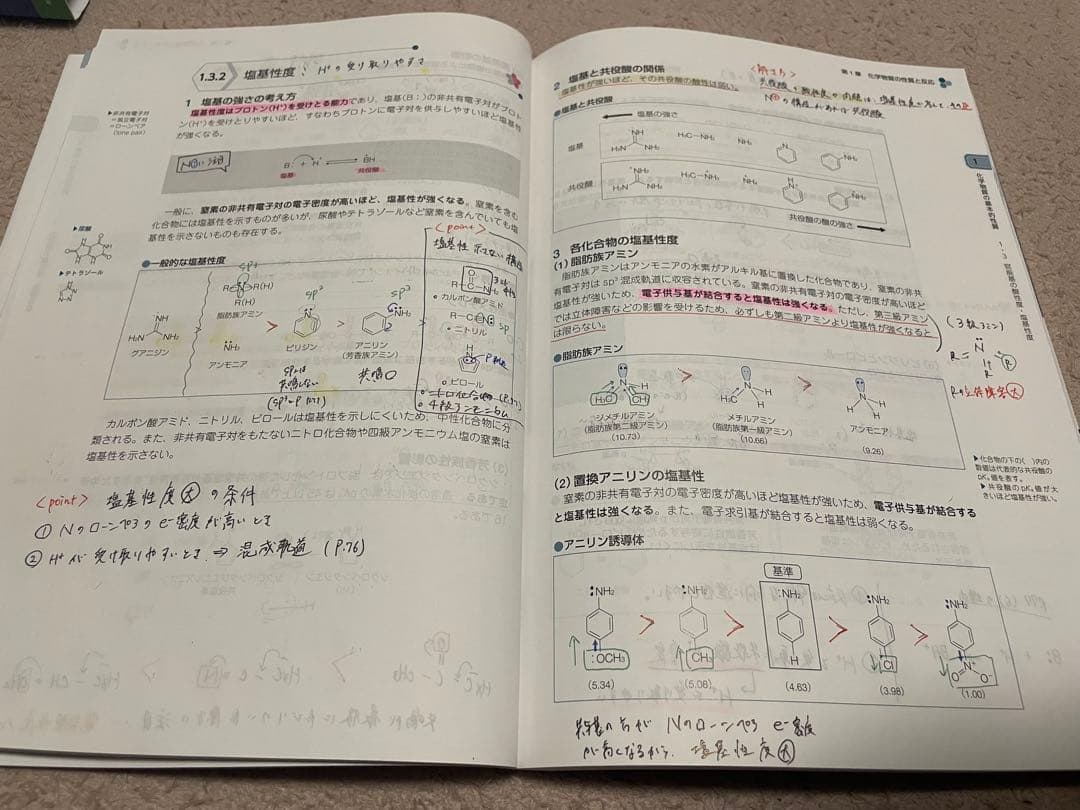 1.3.2 塩基性度：H⁺の受け取りやすさ
1 塩基の強さの考え方
▶非共有電子対
＝孤立電子対
＝ローンペア
(lone pair)
塩基性度はプロトン(H⁺)を受けとる能力であり，塩基(B：)の非共有電子対がプロト
ン(H⁺)を受けとりやすいほど，すなわちプロトンに電子対を供与しやすいほど塩基性
が強くなる。
B: + H⁺ ⇌ BH
塩基 共役酸
一般に，窒素の非共有電子対の電子密度が高いほど，塩基性が強くなる。窒素を含む
化合物には塩基性を示すものが多いが，尿酸やテトラゾールなど窒素を含んでいても塩
基性を示さないものも存在する。
▶尿酸
▶テトラゾール
●一般的な塩基性度
グアニジン
脂肪族アミン
アンモニア
ピリジン
アニリン
(芳香族アミン)
sp² sp³
共鳴しない
共鳴〇
<point>
塩基性 示さない
●カルボン酸アミド
●ニトリル
●ピロール
カルボン酸アミド，ニトリル，ピロールは塩基性を示しにくいため，中性化合物に分
類される。また，非共有電子対をもたないニトロ化合物や四級アンモニウム塩の窒素は
塩基性を示さない。
<point> 塩基性度大の条件
① Nのローンペアのe⁻密度が高いとき
② H⁺が受け取りやすいとき ⇒ 混成軌道 (P.76)
第1章 化学物質の性質と反応
2 塩基と共役酸の関係
塩基性が強いほど，その共役酸の酸性は弱い。
●塩基と共役酸
塩基の強さ
塩基
H₂N NH₂ H₃C-NH₂ NH₃ NH₂
共役酸
共役酸の酸の強さ
3 各化合物の塩基性度
(1) 脂肪族アミン
脂肪族アミンはアンモニアの水素がアルキル基に置換した化合物であり，窒素の非共
有電子対は sp³ 混成軌道に収容されている。窒素の非共有電子対の電子密度が高いほど
塩基性が強いため，電子供与基が結合すると塩基性は強くなる。ただし，第三級アミン
では立体障害などの影響を受けるため，必ずしも第二級アミンより塩基性が強くなると
は限らない。
(3級アミン)
Rの立体障害大
●脂肪族アミン
ジメチルアミン
(脂肪族第二級アミン)
(10.73)
メチルアミン
(脂肪族第一級アミン)
(10.66)
アンモニア
(9.26)
▶化合物の下の( )内の
数値は代表的な共役酸の
pKₐ値を表す。
▶共役酸のpKₐ値が大
きいほど塩基性が強い。
(2) 置換アニリンの塩基性
窒素の非共有電子対の電子密度が高いほど塩基性が強いため，電子供与基が結合する
と塩基性は強くなる。また，電子求引基が結合すると塩基性は弱くなる。
●アニリン誘導体
基準
:NH₂ :NH₂ :NH₂ :NH₂ :NH₂
:OCH₃ CH₃ H Cl
(5.34) (5.08) (4.63) (3.98) (1.00)
Nのローンペア e⁻密度
が高くなるから、塩基性度大
1
化学物質の基本的性質
1・3 官能基の酸性度・塩基性度